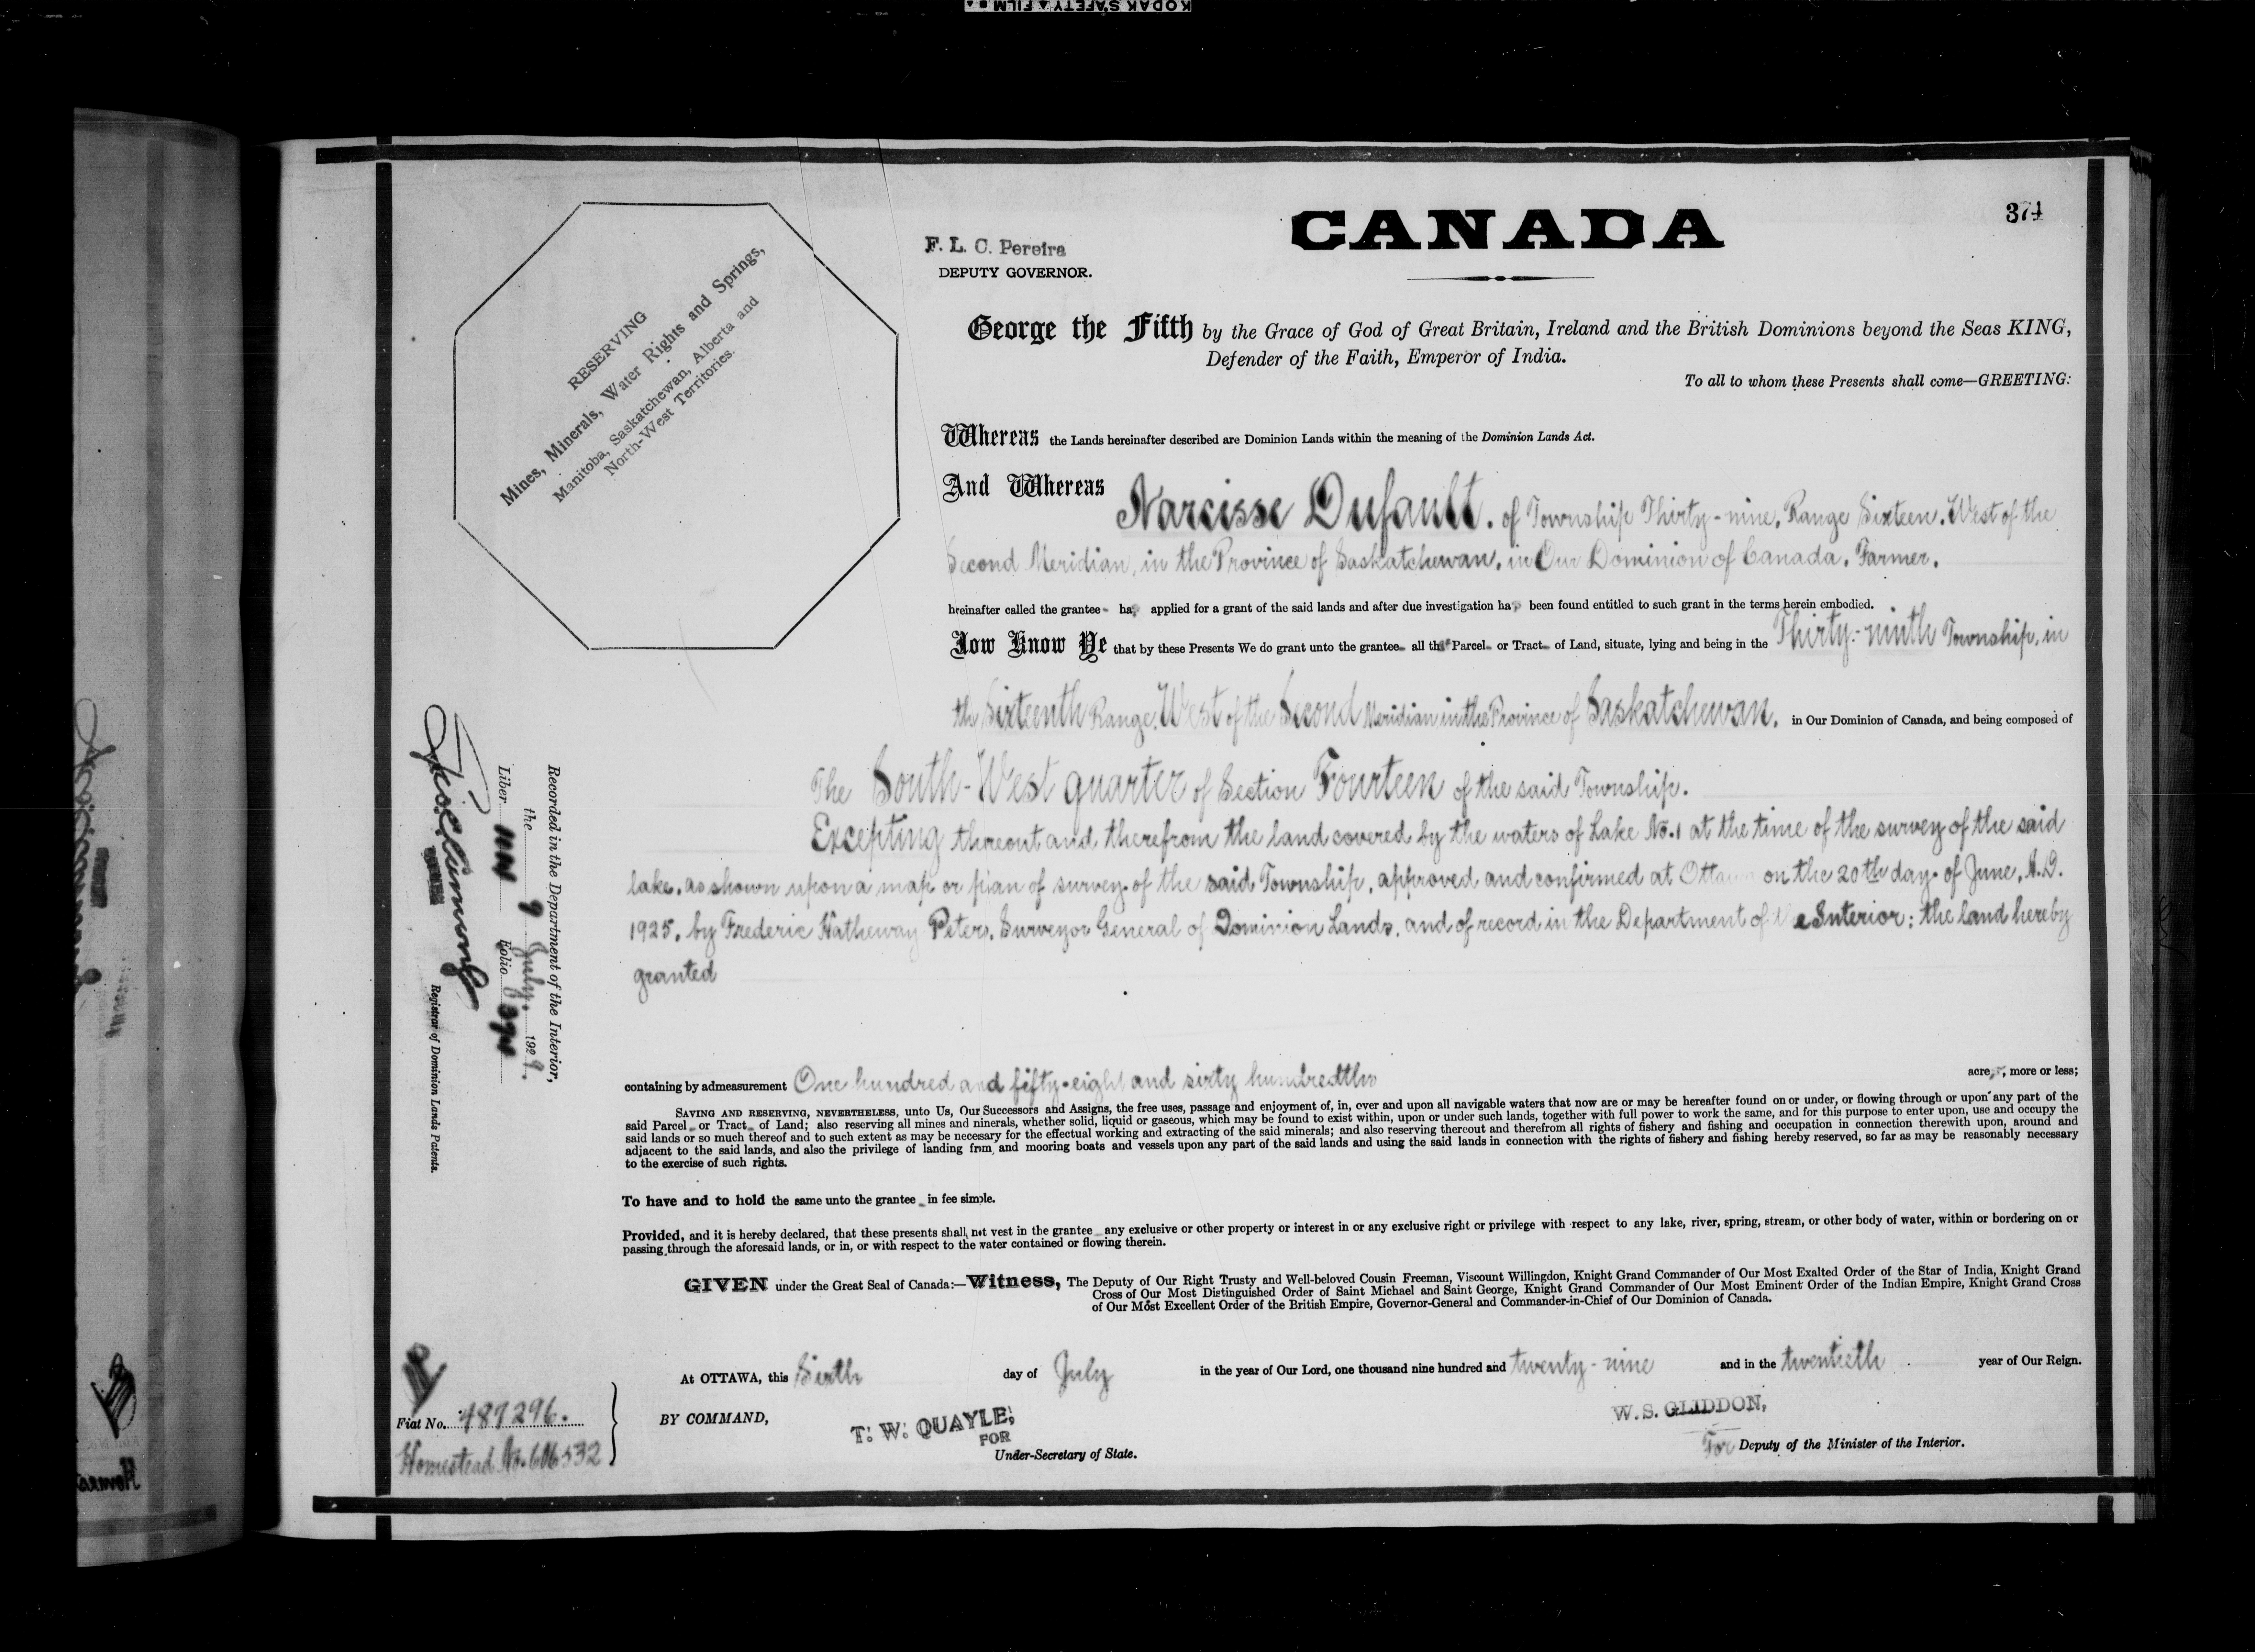 KODAK SAFETY FILM
374
CANADA
F. L. C. Pereira
DEPUTY GOVERNOR.
RESERVING
Mines, Minerals, Water Rights and Springs,
Manitoba, Saskatchewan, Alberta and
North-West Territories.
George the Fifth by the Grace of God of Great Britain, Ireland and the British Dominions beyond the Seas KING,
Defender of the Faith, Emperor of India.
To all to whom these Presents shall come—GREETING:
Whereas the Lands hereinafter described are Dominion Lands within the meaning of the Dominion Lands Act.
And Whereas Narcisse Dufault. of Township Thirty-nine, Range Sixteen, West of the
Second Meridian, in the Province of Saskatchewan, in Our Dominion of Canada, Farmer.
hreinafter called the grantee has applied for a grant of the said lands and after due investigation has been found entitled to such grant in the terms herein embodied.
Now Know Ye that by these Presents We do grant unto the grantee all that Parcel or Tract of Land, situate, lying and being in the Thirty-ninth Township, in
the Sixteenth Range, West of the Second Meridian in the Province of Saskatchewan, in Our Dominion of Canada, and being composed of
The South-West quarter of Section Fourteen of the said Township.
Excepting thereout and therefrom the land covered by the waters of Lake No. 1 at the time of the survey of the said
lake, as shown upon a map or plan of survey of the said Township, approved and confirmed at Ottawa on the 20th day of June, A.D.
1925, by Frederic Hatheway Peters, Surveyor General of Dominion Lands, and of record in the Department of the Interior; the land hereby
granted
containing by admeasurement One hundred and fifty-eight and sixty hundredths acres, more or less;
SAVING AND RESERVING, NEVERTHELESS, unto Us, Our Successors and Assigns, the free uses, passage and enjoyment of, in, over and upon all navigable waters that now are or may be hereafter found on or under, or flowing through or upon any part of the
said Parcel or Tract of Land; also reserving all mines and ninerals, whether solid, liquid or gaseous, which may be found to exist within, upon or under such lands, together with full power to work the same, and for this purpose to enter upon, use and occupy the
said lands or so much thereof and to such extent as may be necessary for the effectual working and extracting of the said minerals; and also reserving thereout and therefrom all rights of fishery and fishing and occupation in connection therewith upon, around and
adjacent to the said lands, and also the privilege of landing from and mooring boats and vessels upon any part of the said lands and using the said lands in connection with the rights of fishery and fishing hereby reserved, so far as may be reasonably necessary
to the exercise of such rights.
To have and to hold the same unto the grantee in fee simple.
Provided, and it is hereby declared, that these presents shall not vest in the grantee any exclusive or other property or interest in or any exclusive right or privilege with respect to any lake, river, spring, stream, or other body of water, within or bordering on or
passing through the aforesaid lands, or in, or with respect to the water contained or flowing therein.
GIVEN under the Great Seal of Canada:—Witness, The Deputy of Our Right Trusty and Well-beloved Cousin Freeman, Viscount Willingdon, Knight Grand Commander of Our Most Exalted Order of the Star of India, Knight Grand
Cross of Our Most Distinguished Order of Saint Michael and Saint George, Knight Grand Commander of Our Most Eminent Order of the Indian Empire, Knight Grand Cross
of Our Most Excellent Order of the British Empire, Governor-General and Commander-in-Chief of Our Dominion of Canada.
At OTTAWA, this Sixth day of July in the year of Our Lord, one thousand nine hundred and twenty-nine and in the twentieth year of Our Reign.
BY COMMAND,
T. W. QUAYLE,
FOR
Under-Secretary of State.
W. S. GLIDDON,
For Deputy of the Minister of the Interior.
Recorded in the Department of the Interior,
the 9 July, 1929.
Liber Folio 374
Registrar of Dominion Lands Patents.
Fiat No. 487296.
Homestead No.